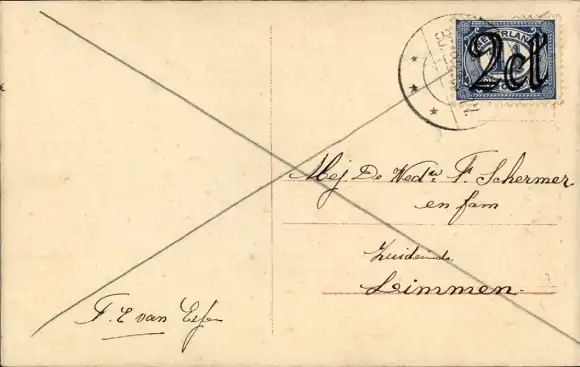 NEDERLAND
2ct
Mej. De Wedᵉ F. Schermer
en fam
Zuideinde
Limmen.
F. C van